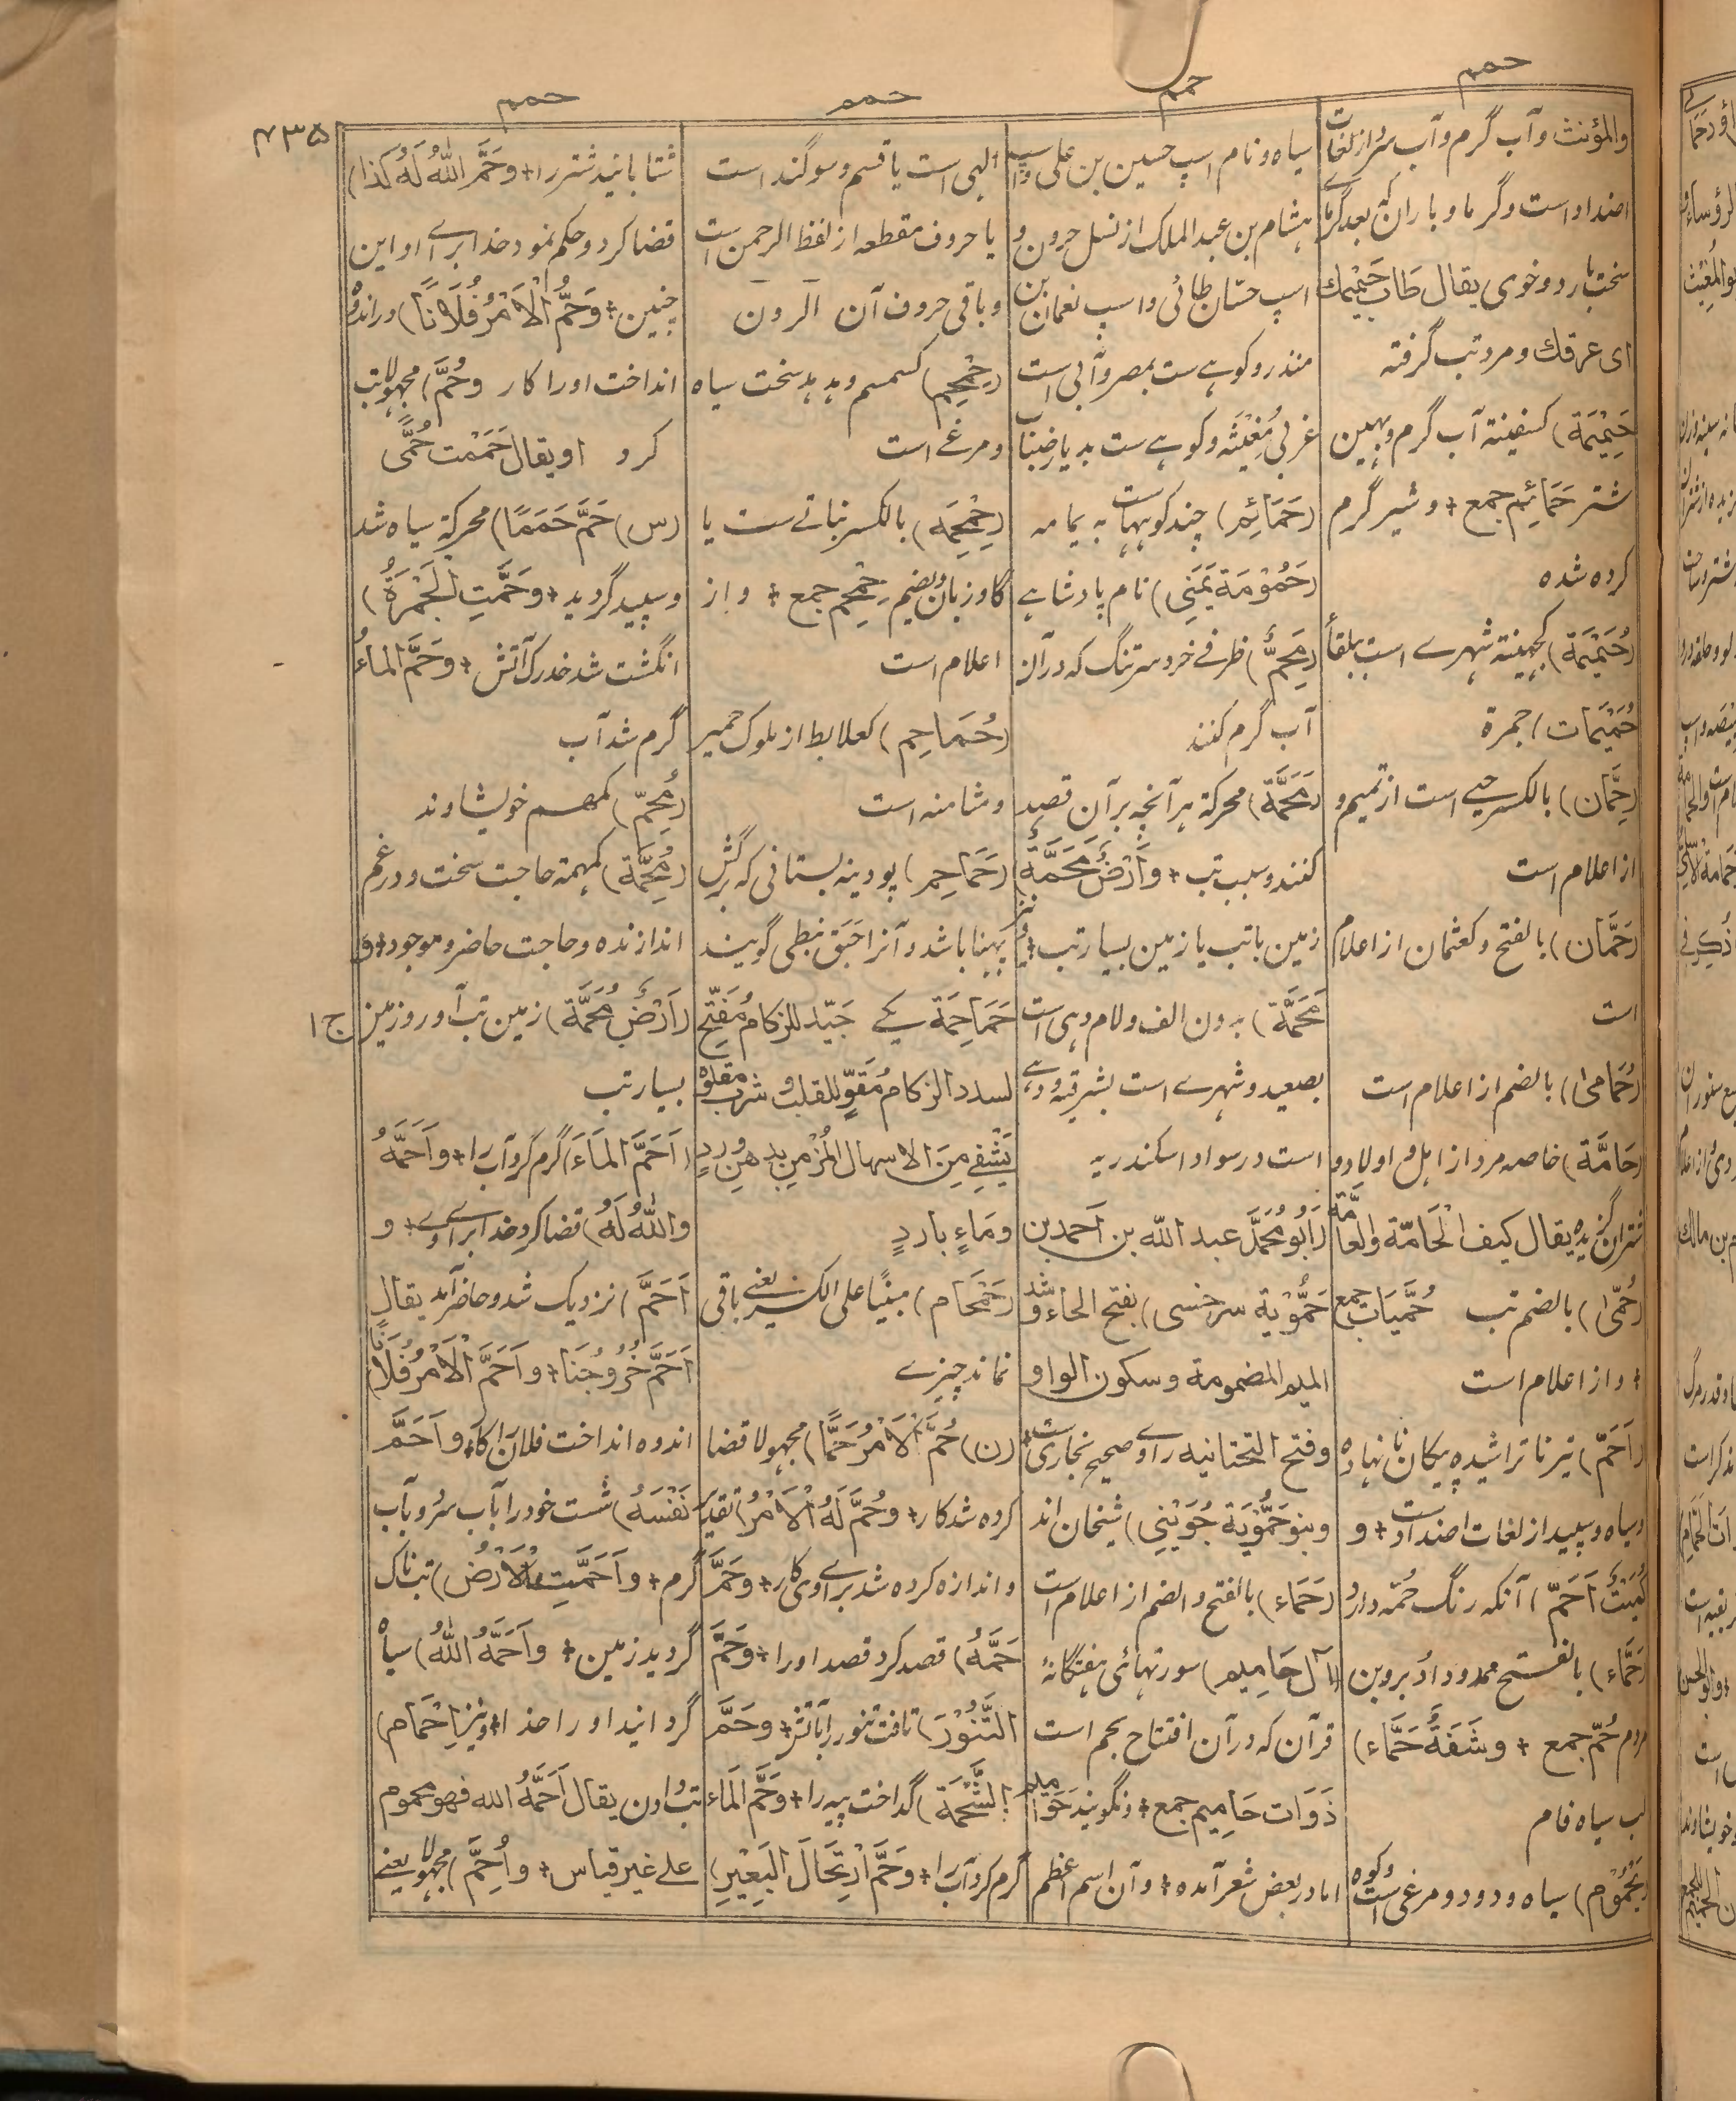 حمم
حمم
حمم
حمم
۴۳۵
والمؤنث وآب گرم وآب سرد از لغات
اضداد است وگرما وباران که بعد گرمای
سخت بارد وخوی یقال طَابَ حَمِیْمُكَ
ای عرقك ومرد تب گرفته
حَمِیْمَة) کسفینة آب گرم وبهین
شتر حَمَائِم جمع + وشیر گرم
کرده شده
(حُمَیْمَة) کجهینة شهرے است ببلقاٴ
حُمَیْمَات) جمرة
(حِمَّان) بالکسر حیے است از تمیم و
از اعلام است
(حَمَّان) بالفتح وکعثمان از اعلام
است
(حُمَامیٰ) بالضم از اعلام است
(حَامَّة) خاصه مرد از اهل و اولاد و
شتران گزیده یقال کیف الْحَامّة والعامَّة
(حُمّیٰ) بالضم تب حُمَّیَات جمع
+ واز اعلام است
(اَحَمّ) تیر ناتراشیده پیکان نانهاده
وسیاه وسپید از لغات اضداد است + و
کُمَیْتٌ اَحَمّ) آنکه رنگ حُمّه دارد
(حَمَّاء) بالفتح ممدودا دُبر و بن
مردم حُمّ جمع + وشَفَةٌ حَمَّاء)
لب سیاه فام
(یَحْمُوْم) سیاه ودود ومرغی است وکوه
سیاه ونام اسپ حسین بن علی واسپ
هشام بن عبد الملك از نسل حرون و
اسپ حسّان طائی واسپ نعمان بن
منذر وکوهے ست بمصر وآبی است
غربی مُغِیْثَه وکوهے ست بدیار ضباب
(حَمَائِم) چند کوههاست به یمامه
(حَمُوْمَة یَمَنِی) نام پادشاہے
(مِحَمٌّ) ظرفے خرد سرتنگ که در آن
آب گرم کنند
(مَحَمَّة) محرکة هر آنچه بر آن قصد
کنند وسبب تب + وَاَرْضٌ مَحَمَّةٌ)
زمین باتب یا زمین بسیار تب + و نیز
مَحَمَّة) بدون الف ولام دهی است
بصعید وشهرے است بشرقیه ودهے
است در سواد اسکندریه
(اَبُو مُحَمَّد عبد الله بن اَحمد بن
حَمُّوْیَة سرخسی) بفتح الحاء وشد
المیم المضمومة وسکون الواو
وفتح التحتانیه راوی صحیح بخاری است
وبنو حَمُّوْیَة جُوَیْنِی) شیخان اند
(حَمَاء) بالفتح والضم از اعلام است
(آل حَامِیم) سورتهائی هفتگانهٔ
قرآن که در آن افتتاح بحم است
ذَوَات حَامِیم جمع + ونگویند حَوَامیم
اما در بعض شعر آمده + وآن اسم اعظم
الٰهی است یا قسم وسوگند است
یا حروف مقطعه از لفظ الرحمن است
وباقی حروف آن الر ون
(حِمْحِم) کسمسم وهدهد سخت سیاه
ومرغے است
(حِمْحِمَة) بالکسر نباتے ست یا
گاو زبان وبضم حِمْحِم جمع + واز
اعلام است
(حُمَاحِم) کعلابط از ملوك حمیر
ومثامنه است
(حَمَاحِم) پودینه بستانی که برگش
پهنا باشد وآنرا حَبَق نبطی گویند
حَمَاحِمَة یکے جَیّد للزکام مُفَتِّح
لسدد الزکام مُقَوٍّ للقلب وشرب مقلوّه
یَشْفِی مِنَ الاسهال الْمُزْمِن بدهن وردٍ
ومَاءٍ باردٍ
(حَمْحَام) مبنیًا علی الکسر یعنے باقی
نماند چیزے
(ن) حُمَّ الْاَمْرُ حَمًّا) مجهولا قضا
کرده شد کار + وحُمَّ لَهُ الْاَمْرُ) تقدیر
واندازه کرده شد برای وی کار + وحَمَّ
حَمَّهُ) قصد کرد قصد او را + وحَمَّ
التَّنُّوْرَ) تافت تنور را بآتش + وحَمَّ
الشَّحْمَة) گداخت پیه را + وحَمَّ الْمَاءَ
گرم کرد آب را + وحَمَّ ارْتِحَالَ البَعِیْرِ)
شتابانید شتر را + وحَمَّ اللّٰهُ لَهُ کَذَا)
قضا کرد وحکم نمود خدا برای او این
چنین + وَحَمَّ الْاَمْرُ فُلَانًا) در اندوه
انداخت او را کار وحُمَّ) مجهولا تب
کرد او یقال حَمَمْت حُمّٰی
(س) حَمَّ حَمَمًا) محرکة سیاه شد
وسپید گردید + وحَمَّتِ الْجَمْرَةُ)
انگشت شد خدرك آتش + وحَمَّ الماءُ
گرم شد آب
(مُحِمّ) کمهم خویشاوند
(مُحِمَّة) کمهمة حاجت سخت ودر غم
اندازنده وحاجت حاضر وموجود + و
(اَرْضٌ مُحِمَّة) زمین تب آور وزمین
بسیار تب
(اَحَمَّ الْمَاءَ) گرم کرد آب را + واَحَمَّهُ
واللّٰهُ لَهُ) قضا کرد خدا برای وے + و
اَحَمَّ) نزدیک شد وحاضر آمد یقال
اَحَمَّ خُرُوجُنَا + واَحَمَّ الْاَمْرُ فُلَانًا)
اندوه انداخت فلان را کار + واَحَمَّ
نَفْسَهُ) شست خود را بآب سرد وبآب
گرم + واَحَمَّتِ الْاَرْضُ) تب ناك
گردید زمین + واَحَمَّهُ اللّٰهُ) سیاه
گردانید او را خدا + ونیز اِحْمَام)
تب دادن یقال اَحَمَّهُ الله فهو محموم
علے غیر قیاس + واُحِمَّ) مجهولا یعنے
ج ۱